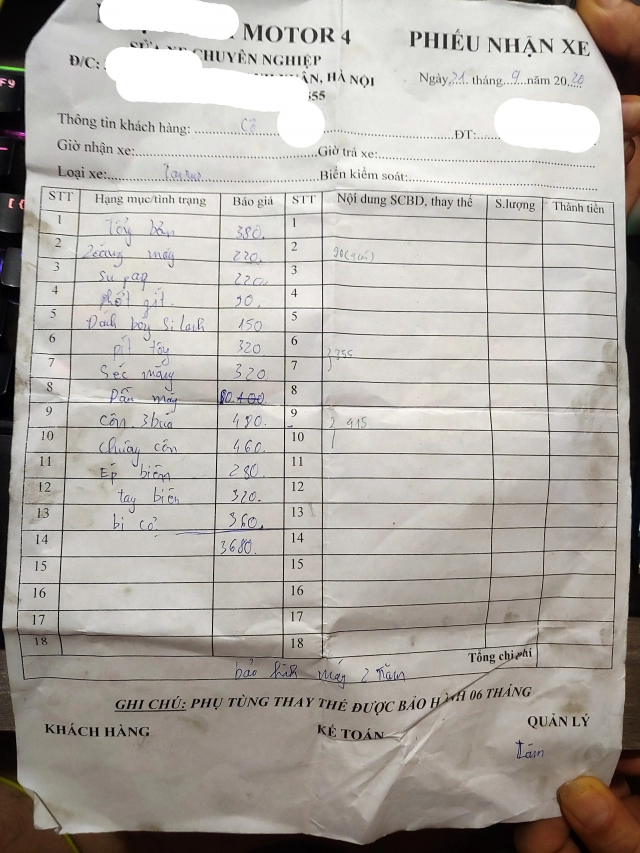 MOTOR 4
SỬA XE CHUYÊN NGHIỆP
Đ/C:
HÀ NỘI
555
PHIẾU NHẬN XE
Ngày 21 tháng 9 năm 2020
Thông tin khách hàng: Cô ĐT:
Giờ nhận xe: Giờ trả xe:
Loại xe: Taurus Biển kiểm soát:
STT Hạng mục/tình trạng Báo giá STT Nội dung SCBD, thay thế S.lượng Thành tiền
1 380. 1
2 Zoăng máy 220. 2
3 su pap 220. 3
4 phớt git 90. 4
5 Đánh bóng Si lanh 150 5
6 pít tông 320 6
7 Séc măng 320. 7 355
8 Dầu máy 80. 100 8
9 Côn 3 búa 480. 9 915
10 chuông côn 460. 10
11 Ép biên 280. 11
12 tay biên 320. 12
13 bi cổ 360. 13
14 3680. 14
15 15
17 16
17 17
18 18 Tổng chi phí
bảo hành máy 2 năm
GHI CHÚ: PHỤ TÙNG THAY THẾ ĐƯỢC BẢO HÀNH 06 THÁNG
KHÁCH HÀNG KẾ TOÁN QUẢN LÝ
Lâm
F9